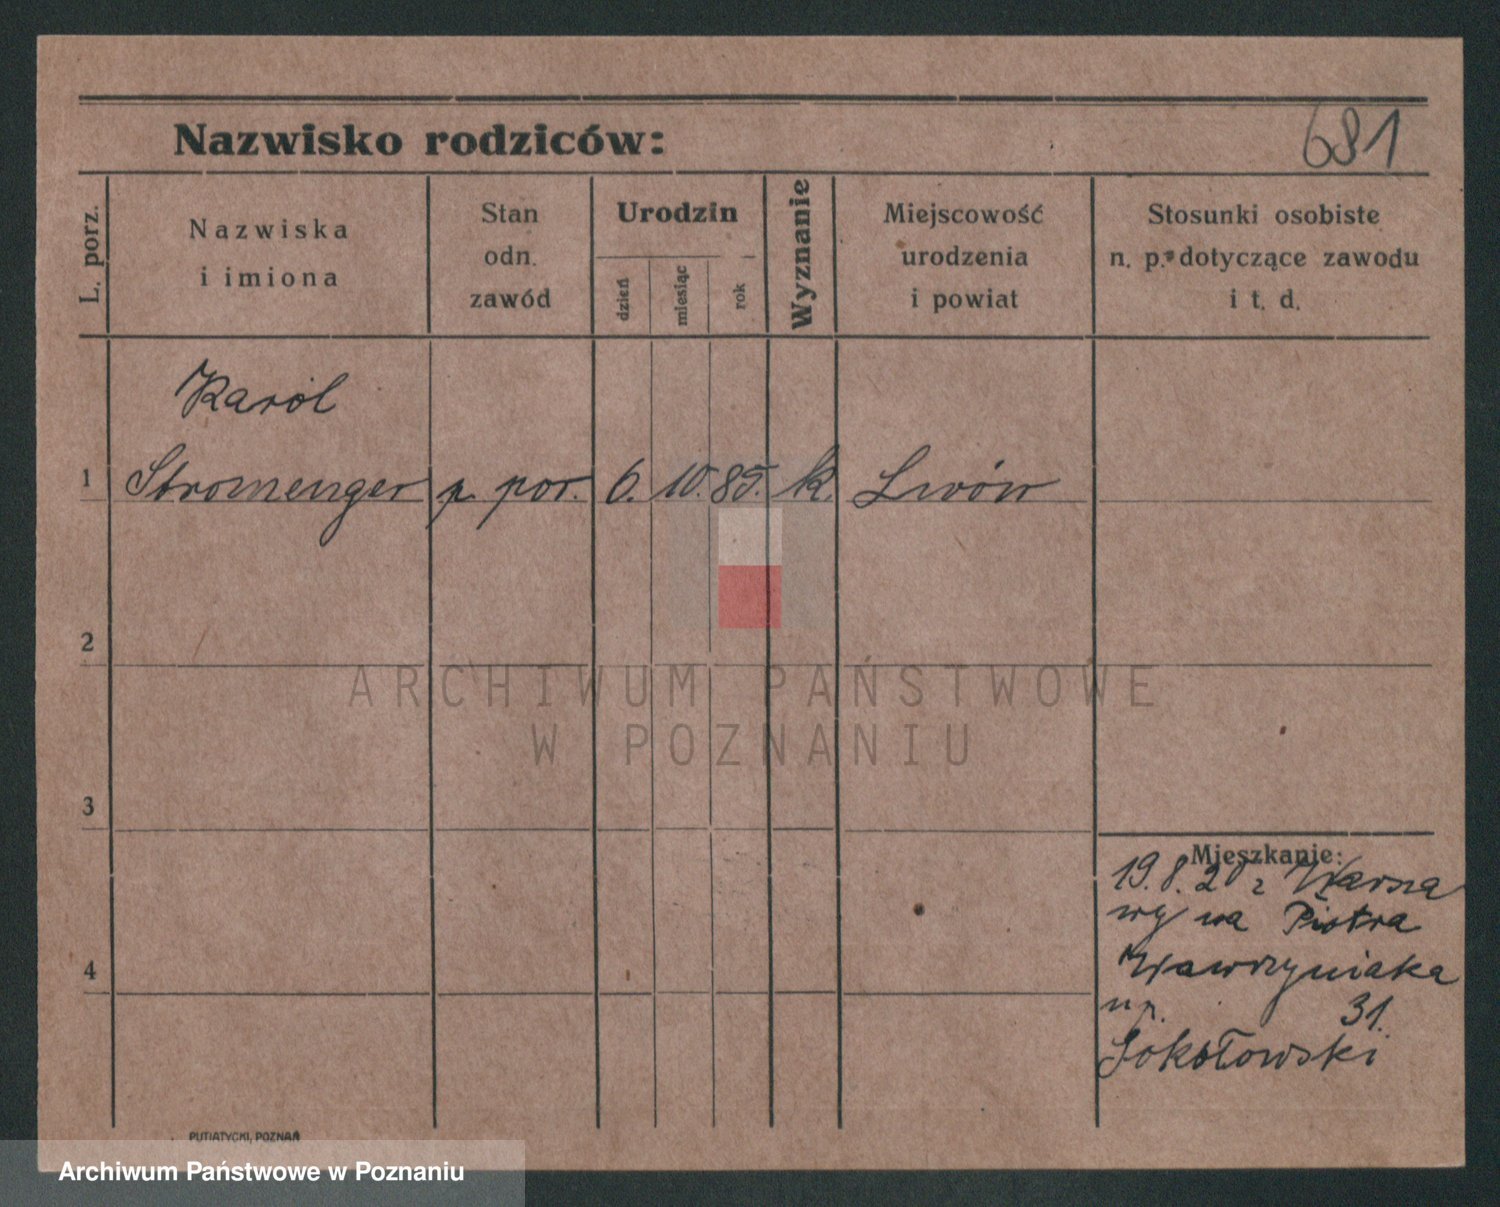 Nazwisko rodziców:
681
L. porz.
Nazwiska
i imiona
Stan
odn.
zawód
Urodzin
dzień
miesiąc
rok
Wyznanie
Miejscowość
urodzenia
i powiat
Stosunki osobiste
n. p. dotyczące zawodu
i t. d.
Karol
1 Stromenger p. por. 6. 10. 85. k. Lwów
2
ARCHIWUM PAŃSTWOWE
W POZNANIU
3
4
Mieszkanie:
19.8.20 z Warsza
wy na Piotra
Wawrzyniaka
31.
Sokołowski
PUTIATYCKI, POZNAŃ
Archiwum Państwowe w Poznaniu